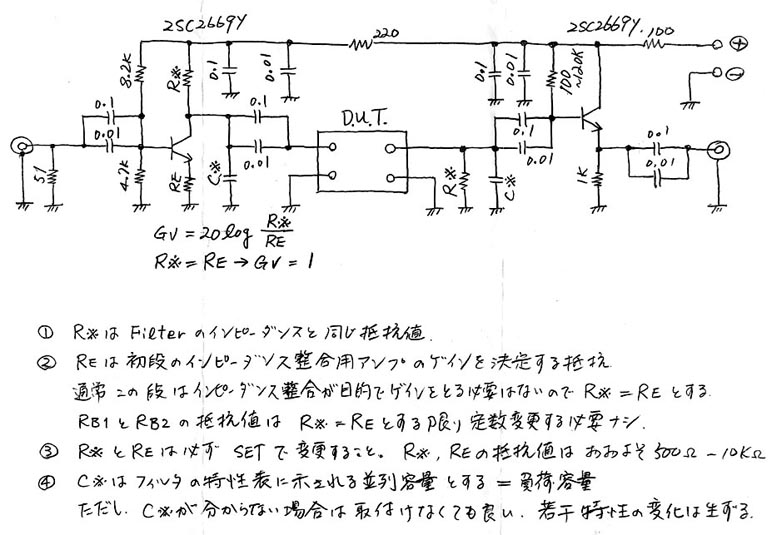 2SC2669Y
2SC2669Y
220
100
8.2K
R※
0.1
0.01
0.1
0.01
100
~120K
0.1
0.01
0.1
0.01
D.U.T.
0.1
0.01
0.1
0.01
51
4.7K
RE
C※
R※
C※
1K
⊕
⊖
GV = 20log R※/RE
R※ = RE → GV = 1
① R※は Filterのインピーダンスと同じ抵抗値.
② REは初段のインピーダンス整合用アンプのゲインを決定する抵抗
通常この段はインピーダンス整合が目的でゲインをとる必要はないので R※ = RE とする.
RB1とRB2の抵抗値は R※ = REとする限り定数変更する必要ナシ.
③ R※とREは必ず SETで変更すること。R※, REの抵抗値はおおよそ500Ω～10KΩ
④ C※はフィルタの特性表に示される並列容量とする = 負荷容量
ただし. C※が分からない場合は取付けなくても良い. 若干特性の変化は生ずる.